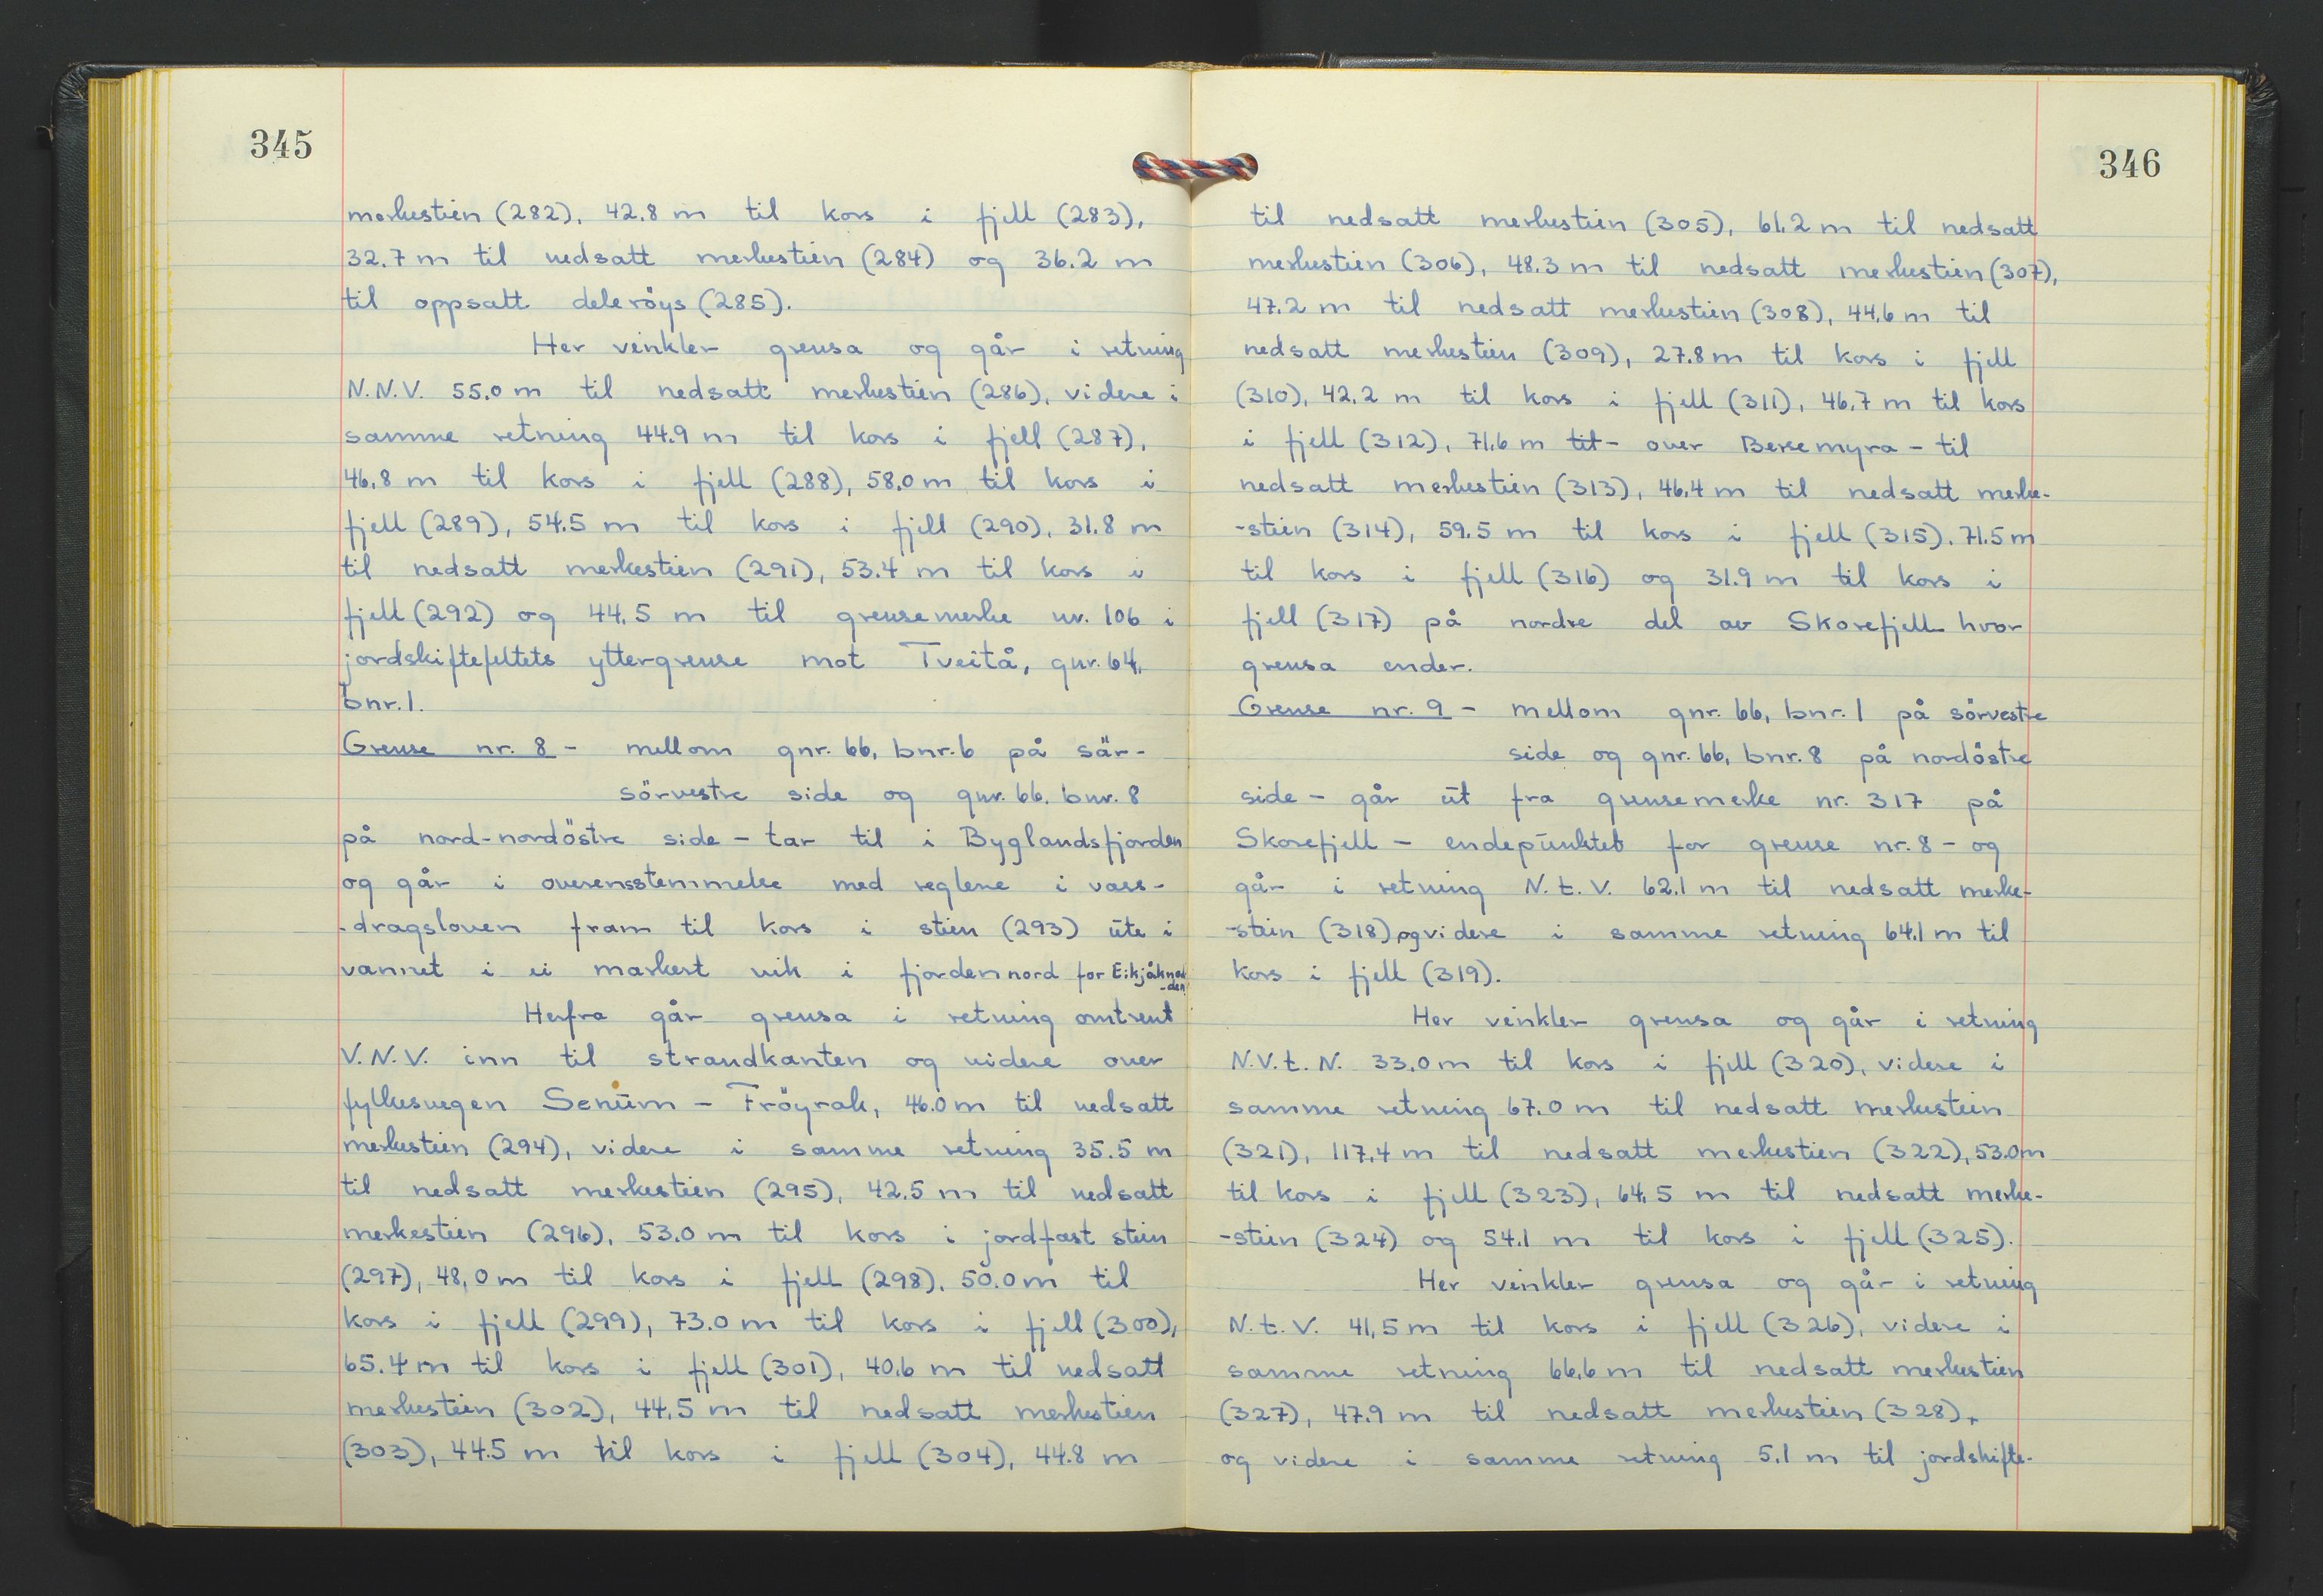 345
merkestein (282), 42.8 m til kors i fjell (283),
32.7 m til nedsatt merkestein (284) og 36.2 m
til oppsatt deleröys (285).
Her vinkler grensa og går i retning
N.N.V. 55.0 m til nedsatt merkestein (286), videre i
samme retning 44.9 m til kors i fjell (287),
46.8 m til kors i fjell (288), 58.0 m til kors i
fjell (289), 54.5 m til kors i fjell (290), 31.8 m
til nedsatt merkestein (291), 53.4 m til kors i
fjell (292) og 44.5 m til grensemerke nr. 106 i
jordskiftefeltets yttergrense mot Tveitå, gnr. 64,
bnr. 1.
Grense nr. 8 - mellom gnr. 66, bnr. 6 på sär-
sörvestre side og gnr. 66, bnr. 8
på nord-nordöstre side - tar til i Byglandsfjorden
og går i overensstemmelse med reglene i vass-
-dragsloven fram til kors i stein (293) ute i
vannet i ei markert vik i fjorden nord for Eikjåknod
-den
Herfra går grensa i retning omtrent
V.N.V. inn til strandkanten og videre over
fylkesvegen Senum - Fröyrak, 46.0 m til nedsatt
merkestein (294), videre i samme retning 35.5 m
til nedsatt merkestein (295), 42.5 m til nedsatt
merkestein (296), 53.0 m til kors i jordfast stein
(297), 48.0 m til kors i fjell (298), 50.0 m til
kors i fjell (299), 73.0 m til kors i fjell (300),
65.4 m til kors i fjell (301), 40.6 m til nedsatt
merkestein (302), 44.5 m til nedsatt merkestein
(303), 44.5 m til kors i fjell (304), 44.8 m
346
til nedsatt merkestein (305), 61.2 m til nedsatt
merkestein (306), 48.3 m til nedsatt merkestein (307),
47.2 m til nedsatt merkestein (308), 44.6 m til
nedsatt merkestein (309), 27.8 m til kors i fjell
(310), 42.2 m til kors i fjell (311), 46.7 m til kors
i fjell (312), 71.6 m til - over Bersemyra - til
nedsatt merkestein (313), 46.4 m til nedsatt merke-
-stein (314), 59.5 m til kors i fjell (315), 71.5 m
til kors i fjell (316) og 31.9 m til kors i
fjell (317) på nordre del av Skorefjell hvor
grensa ender.
Grense nr. 9 - mellom gnr. 66, bnr. 1 på sörvestre
side og gnr. 66, bnr. 8 på nordöstre
side - går ut fra grensemerke nr. 317 på
Skorefjell - endepunktet for grense nr. 8 - og
går i retning N.t.V. 62.1 m til nedsatt merke-
-stein (318) og videre i samme retning 64.1 m til
kors i fjell (319).
Her vinkler grensa og går i retning
N.V.t.N. 33.0 m til kors i fjell (320), videre i
samme retning 67.0 m til nedsatt merkestein
(321), 117.4 m til nedsatt merkestein (322), 53.0 m
til kors i fjell (323), 64.5 m til nedsatt merke-
-stein (324) og 54.1 m til kors i fjell (325).
Her vinkler grensa og går i retning
N.t.V. 41.5 m til kors i fjell (326), videre i
samme retning 66.6 m til nedsatt merkestein
(327), 47.9 m til nedsatt merkestein (328),
og videre i samme retning 5.1 m til jordskifte-